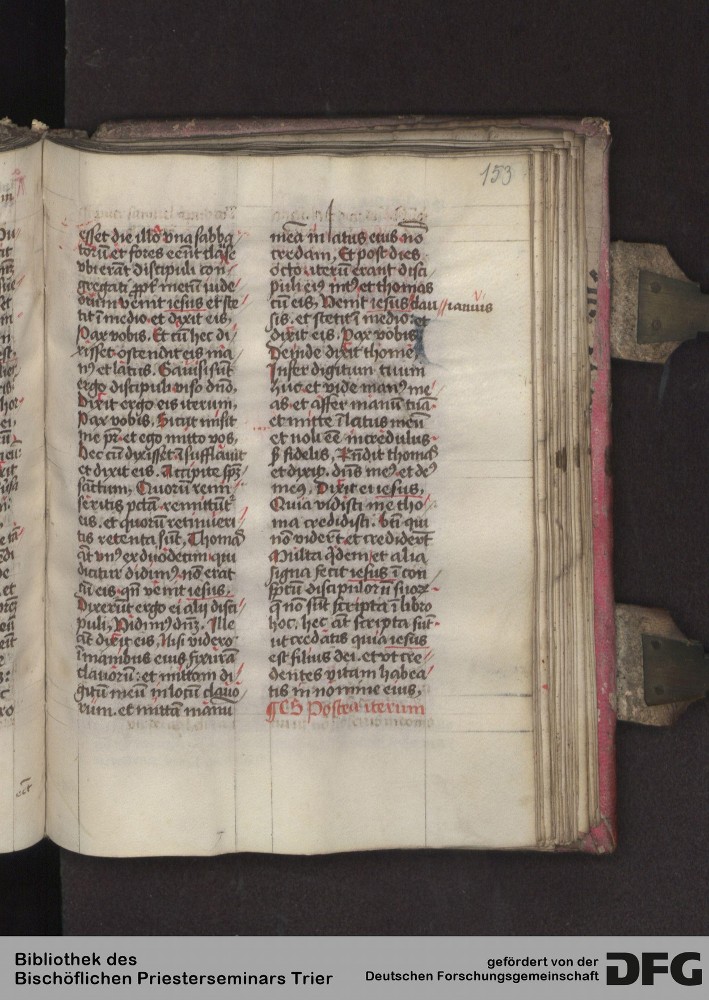 153
esset die illo vna sabba
torū et fores eēnt clause
vbi erāt discipuli con
gregati ꝓpt̄ metū iude
orum venit iesus et ste
tit ī medio et dixit eis,
Pax vobis. Et cū hec di
xisset ostendit eis ma
nꝰ et latus. Gauisi sūt
ergo discipuli viso dn̄o.
Dixit ergo eis iterum,
Pax vobis. Sicut misit
me pr̄ et ego mitto vos,
Hec cū dixisset īsufflauit
et dixit eis. Accipite sp̄m
sanctum, Quorū remi
seritis pctā remittūt᷑
eis. et quorū retinueri
tis retenta sūt, Thomas
aūt vnꝰ ex duodecim qui
dicitur didimꝰ nō erat
cū eis qn̄ venit iesus.
Dixerūt ergo ei alij disci
puli, Vidimꝰ dn̄m. Ille
aūt dixit eis, Nisi videro
ī manibus eius fixurā
clauorū: et mittam di
gitū meū in locū clauo
rum. et mittā manū
meā in latus eius nō
credam, Et post dies
octo iterū erant disci
puli eiꝰ intꝰ et thomas
cū eis, Venit iesus clau // ianuis
sis. et stetit ī medio: et
dixit eis. Pax vobis
Deinde dixit thome
Infer digitum tuum
huc et vide manꝰ me
as et affer manū tuā
et mitte ī latus meū
et noli eē incredulus
ß fidelis, Rn̄dit thomas
et dixit. dn̄s meꝰ et deꝰ
meꝰ, Dixit ei iesus,
Quia vidisti me tho
ma credidisti. bt̄i qui
nō viderūt et crediderūt
Multa qͥdem et alia
signa fecit iesus ī con
spectu discipulorū suorꝝ
q̄ nō sūt scripta ī libro
hoc, hec aūt scripta sūt
ut credatis quia iesus
est filius dei. et vt cre
dentes vitam habea
tis in nomine eius,
Postea iterum
Bibliothek des
Bischöflichen Priesterseminars Trier
gefördert von der
Deutschen Forschungsgemeinschaft
DFG